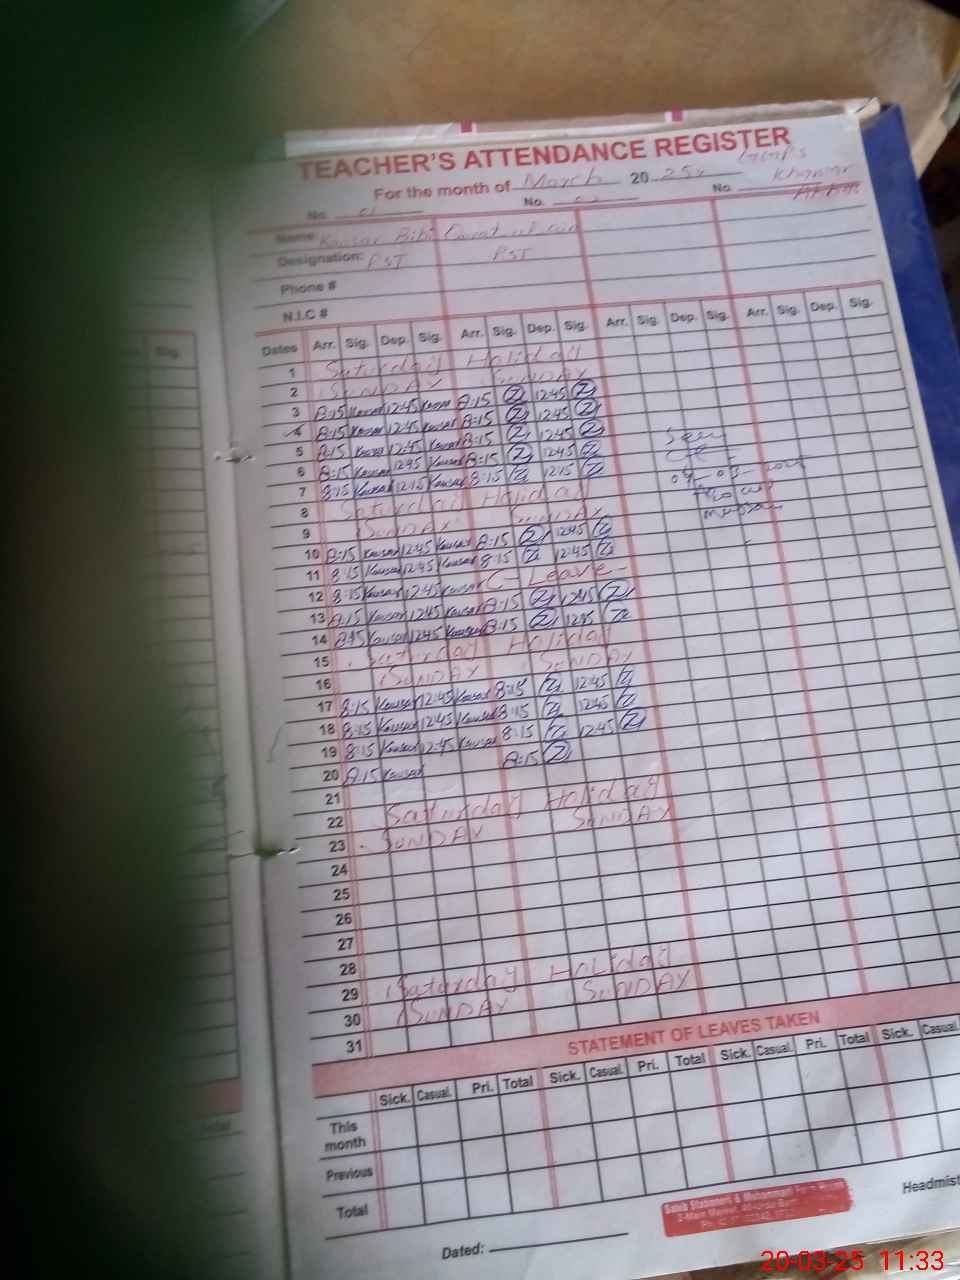 TEACHER'S ATTENDANCE REGISTER
For the month of March 2025
No. No. No.
Name Kausar Bibi
Designation: PST PST
Phone #
N.I.C #
Dates Arr. Sig. Dep. Sig. Arr. Sig. Dep. Sig. Arr. Sig. Dep. Sig. Arr. Sig. Dep. Sig.
1 Saturday Holiday
2 SUNDAY SUNDAY
3 8:15 Kausar 12:45 Kausar 8:15 12:45
4 8:15 Kausar 12:45 Kausar 8:15 12:45
5 8:15 Kausar 12:45 Kausar 8:15 12:45
6 8:15 Kausar 12:45 Kausar 8:15 12:45
7 8:15 Kausar 12:15 Kausar 8:15 12:15
8 Saturday Holiday
9 SUNDAY SUNDAY
10 8:15 Kausar 12:45 Kausar 8:15 12:45
11 8:15 Kausar 12:45 Kausar 8:15 12:45
12 8:15 Kausar 12:45 Kausar C-Leave-
13 8:15 Kausar 12:45 Kausar 8:15 12:45
14 8:15 Kausar 12:45 Kausar 8:15 12:45
15 Saturday Holiday
16 SUNDAY SUNDAY
17 8:15 Kausar 12:45 Kausar 8:15 12:45
18 8:15 Kausar 12:45 Kausar 8:15 12:45
19 8:15 Kausar 12:45 Kausar 8:15 12:45
20 8:15 Kausar 8:15
21
22 Saturday Holiday
23 SUNDAY SUNDAY
24
25
26
27
28
29 Saturday Holiday
30 SUNDAY SUNDAY
31
STATEMENT OF LEAVES TAKEN
Sick. Casual. Pri. Total Sick. Casual. Pri. Total Sick. Casual. Pri. Total Sick. Casual.
This month
Previous
Total
Headmist
Dated:
20-03-25 11:33